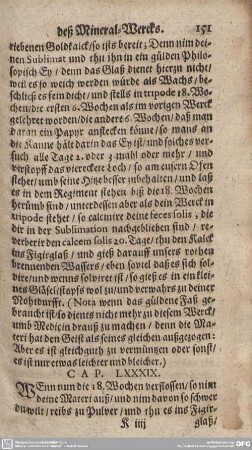 deß Mineral-Wercks. 151
riebenen Goldkalck/so ists bereit; Denn nim dei-
nen Sublimat und thu ihn in ein gülden Philo-
sovisch Ey / denn das Glaß dienet hierzu nicht/
weil es so weich werden würde als Wachs/ be-
schließ es fein dicht/ und stells in tripode 18. Wo-
chen/die ersten 6. Wochen als im vorigen Werck
gelehret worden/die andere 6. Wochen/ daß man
daran ein Papyr anstecken könne/so mans an
die Kanne hält darin das Ey ist/ und solches ver-
such alle Tage 2. oder 3 mahl oder mehr / und
verstopff das viereckete Loch/ so am eusern Ofen
stehet/ umb seine Hitze besser inbehalten/ und laß
es in dem Regiment stehen biß die 18. Wochen
herümb sind/ unterdessen aber als dein Werck in
tripode stehet / so calcinire deine feces solis, die
dir in der Sublimation nachgeblieben sind / re-
verberir den calcem solis 20. Tage/ thu den Kalck
ins Figirglaß/ und gieß darauff unsers rothen
brennenden Wassers/ eben soviel daß es sich sol-
vire/und wenns solvirt ist/ so gieß es in ein klei-
nes Gläsel/stopffs wol zu/und verwahrs zu deiner
Nohtdurfft. (Nota wenn das güldene Faß ge-
braucht ist/so dienes nicht mehr zu diesem Werck/
umb Medicin drauß zu machen / denn die Ma-
teri hat den Geist als seines gleichen außgezogen:
Aber es ist gleichgut zu vermüntzen oder sonst/
es ist nur etwas leichter und bleicher.)
CAP. LXXXIX.
WEnn nun die 18. Wochen verflossen/ so nim
deine Materi auß/ und nim davon so schwer
du wilt/ reibs zu Pulver/ und thu es ins Figir-
K iiij glaß/